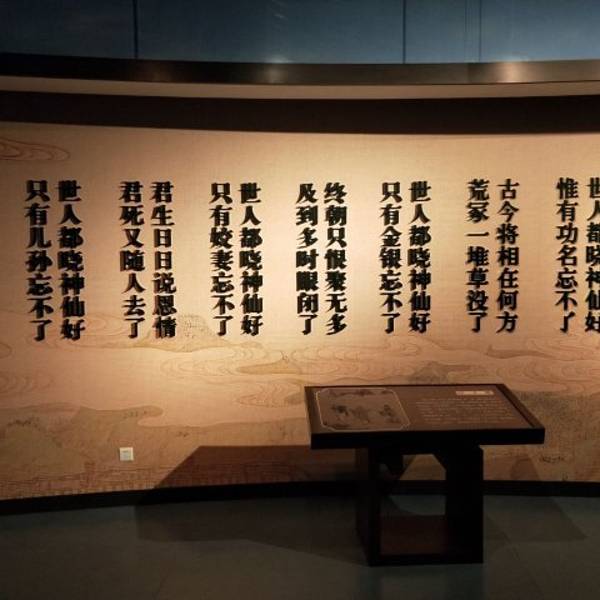 世人都晓神仙好
惟有功名忘不了
古今将相在何方
荒冢一堆草没了
世人都晓神仙好
只有金银忘不了
终朝只恨聚无多
及到多时眼闭了
世人都晓神仙好
只有姣妻忘不了
君生日日说恩情
君死又随人去了
世人都晓神仙好
只有儿孙忘不了